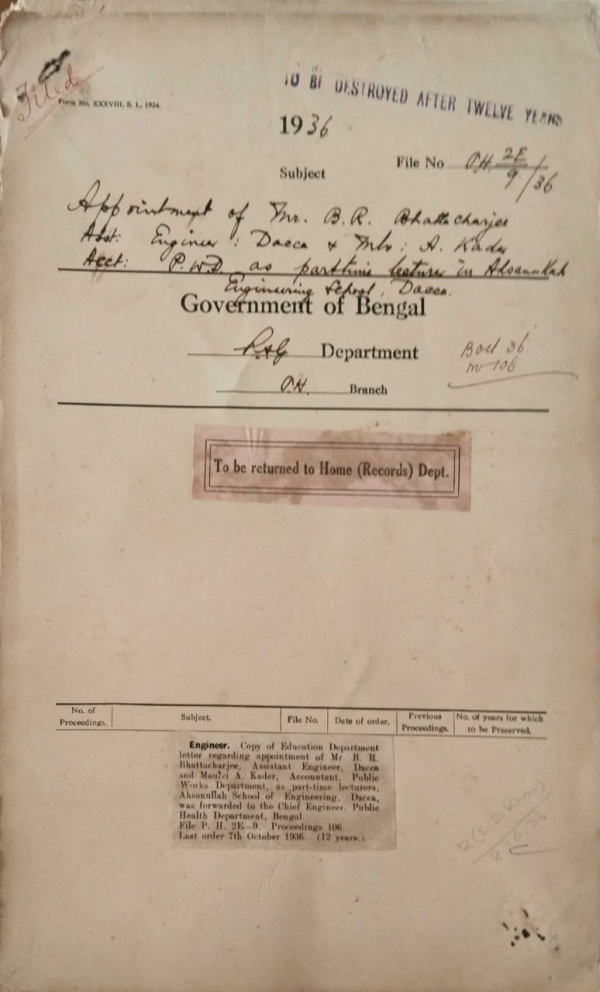 Filed
Form No. XXXVIII, S. I., 1934.
TO BE DESTROYED AFTER TWELVE YEARS
1936
Subject
File No P.H. 2E/9/36
Appointment of Mr. B. R. Bhattacharjee
Asst: Engineer: Dacca & Mlv: A. Kader
Acct: P.W.D as part time lecturer in Ahsanullah
Engineering School, Dacca.
Government of Bengal
Department
P.H. Branch
36
106
To be returned to Home (Records) Dept.
No. of Proceedings. Subject. File No. Date of order. Previous Proceedings. No. of years for which to be Preserved.
Engineer. Copy of Education Department
letter regarding appointment of Mr. B. R.
Bhattacharjee, Assistant Engineer, Dacca
and Maulvi A. Kader, Accountant, Public
Works Department, as part-time lecturers,
Ahsanullah School of Engineering, Dacca,
was forwarded to the Chief Engineer, Public
Health Department, Bengal.
File P. H. 2E—9. Proceedings 106.
Last order 7th October 1936. (12 years.)